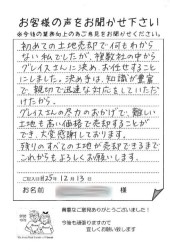 お客様の声をお聞かせ下さい
※今後の業務向上の為ご意見をお聞かせください。
初めての土地売却で何もわから
ない私でしたが、複数社の中から
グレイスさんに決め、お任せすること
にしました。決め手は、知識が豊富
で、親切で迅速な対応をしていた
だけたから。
グレイスさんの尽力のおかげで、難しい
土地も高い価格で売却することが
でき、大変感謝しております。
残りのすべての土地が売却できるまで
これからもよろしくお願いします。
ご記入日 25年 12月 13日
お名前
貴重なご意見ありがとうございました!
今後も頑張りますので
宜しくお願い致します